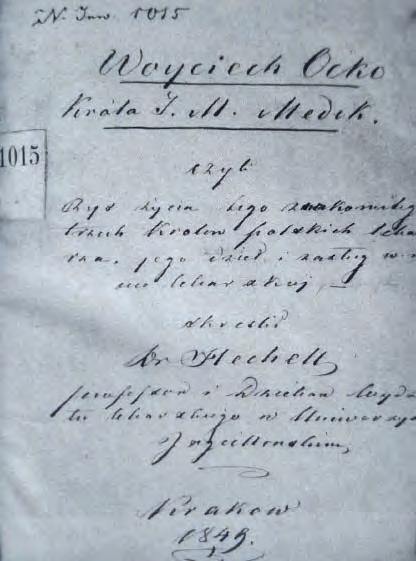 N. Inw. 1015
Woyciech Ocko
Króla J. M. Medik.
1015
czyli
Rys życia tego znakomitego
trzech Królow polskich leka
rza, jego dzieł i zasług w
ce lekarskiej
skreslił
Dr Flechell
professor i Dziekan Wydz
łu lekarskiego w Uniwersyt
Jagiellonskim
Krakow
1849.